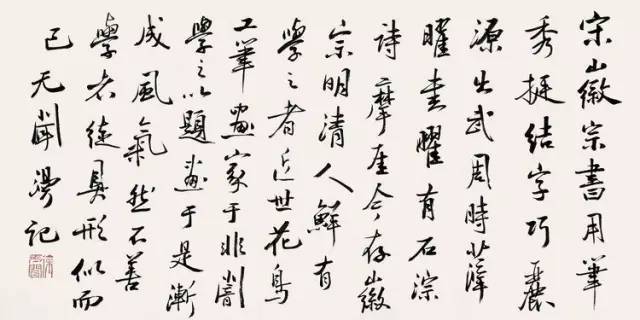 宋徽宗書用筆
秀挺結字巧麗
源出武周時薛
曜書曜有石淙
詩摩厓今存徽
宗明清人鮮有
學之者近世花鳥
工筆畫家于非闇
學之以題畫于是漸
成風氣然不善
學者徒具形似而
已无聞漫記